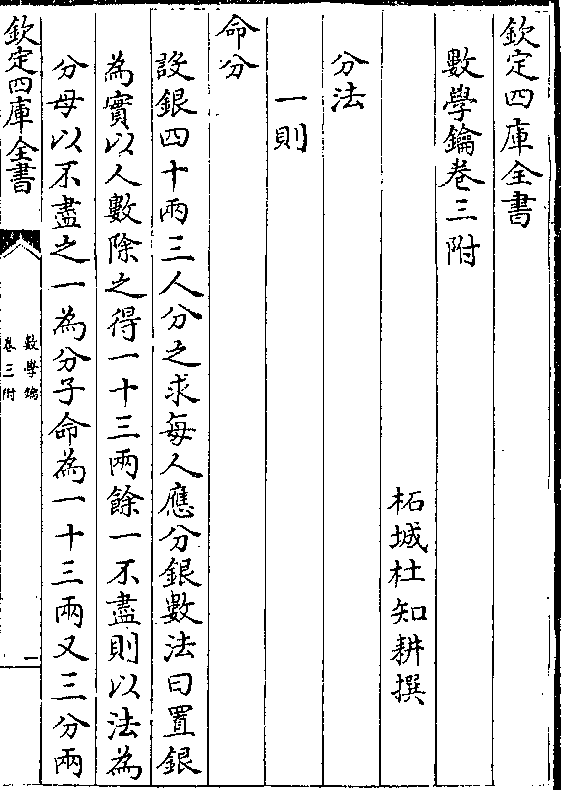 欽定四庫全書
數學鑰卷三附
柘城杜知耕撰
分法
一則
命分
設銀四十兩三人分之求每人應分銀數法曰置銀
為實以人數除之得一十三兩餘一不盡則以法為
分母以不盡之一為分子命為一十三兩又三分兩
欽定四庫全書
數學鑰
卷三附
一